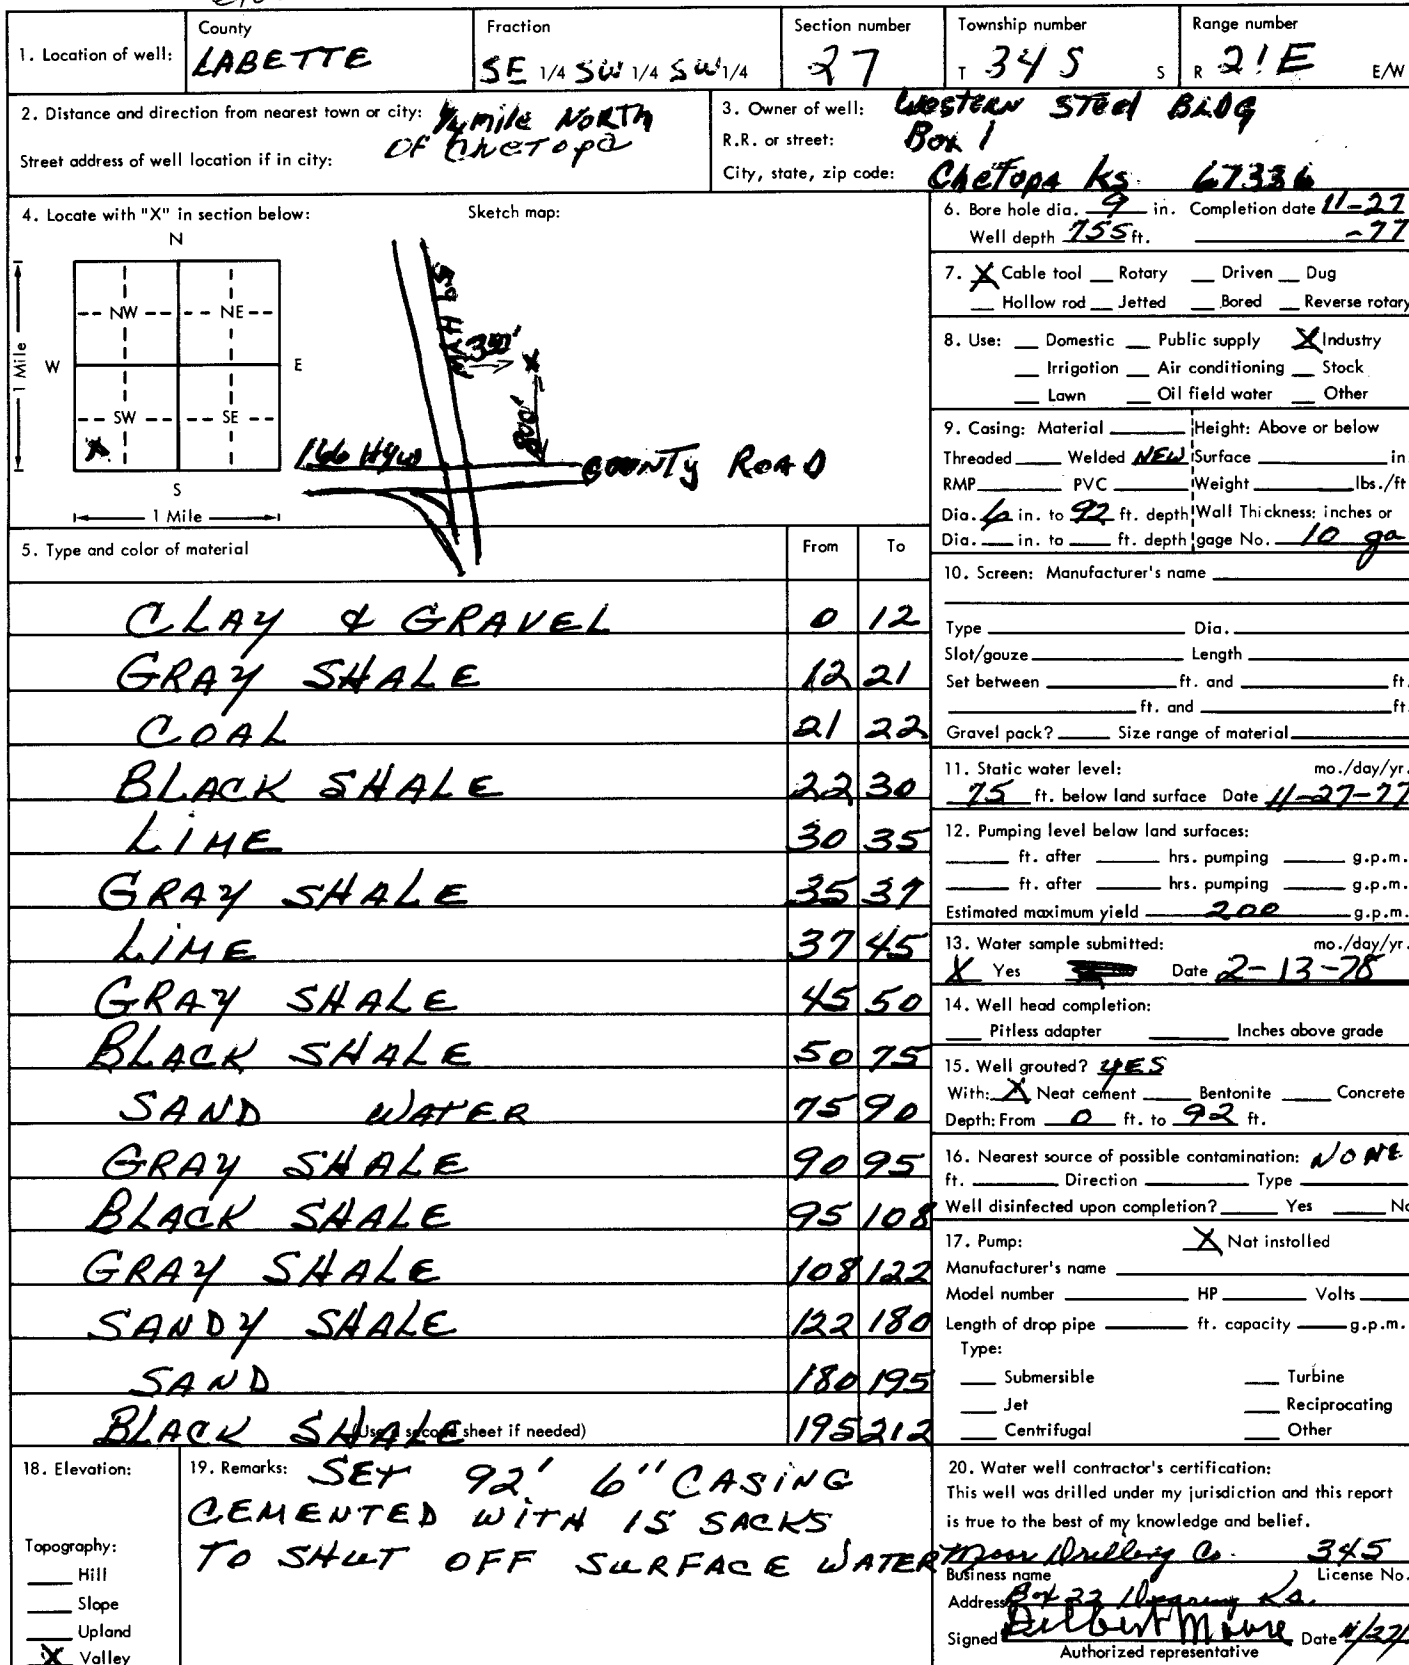 1. Location of well: County LABETTE Fraction SE 1/4 SW 1/4 SW 1/4 Section number 27 Township number T 34 S S Range number R 21E E/W
2. Distance and direction from nearest town or city: 1/4 mile NORTH
OF CheTopa
Street address of well location if in city:
3. Owner of well: WESTERN STeel BLDG
R.R. or street: Box 1
City, state, zip code: CheTopa Ks. 67336
4. Locate with "X" in section below:
N
NW NE
W E
SW SE
X
S
1 Mile
1 Mile
Sketch map:
59 HYW
350'
X
800'
166 HYW COUNTY ROAD
5. Type and color of material From To
CLAY & GRAVEL 0 12
GRAY SHALE 12 21
COAL 21 22
BLACK SHALE 22 30
LIME 30 35
GRAY SHALE 35 37
LIME 37 45
GRAY SHALE 45 50
BLACK SHALE 50 75
SAND WATER 75 90
GRAY SHALE 90 95
BLACK SHALE 95 108
GRAY SHALE 108 122
SANDY SHALE 122 180
SAND 180 195
BLACK SHALE 195 212
(Use a second sheet if needed)
6. Bore hole dia. 9 in. Completion date 11-27
Well depth 755 ft. -77
7. X Cable tool Rotary Driven Dug
Hollow rod Jetted Bored Reverse rotary
8. Use: Domestic Public supply X Industry
Irrigation Air conditioning Stock
Lawn Oil field water Other
9. Casing: Material Height: Above or below
Threaded Welded NEW Surface in.
RMP PVC Weight lbs./ft
Dia. 6 in. to 92 ft. depth Wall Thickness: inches or
Dia. in. to ft. depth gage No. 10 ga
10. Screen: Manufacturer's name
Type Dia.
Slot/gauze Length
Set between ft. and ft.
ft. and ft.
Gravel pack? Size range of material
11. Static water level: mo./day/yr.
75 ft. below land surface Date 11-27-77
12. Pumping level below land surfaces:
ft. after hrs. pumping g.p.m.
ft. after hrs. pumping g.p.m.
Estimated maximum yield 200 g.p.m.
13. Water sample submitted: mo./day/yr.
X Yes Date 2-13-78
14. Well head completion:
Pitless adapter Inches above grade
15. Well grouted? YES
With: X Neat cement Bentonite Concrete
Depth: From 0 ft. to 92 ft.
16. Nearest source of possible contamination: NONE
ft. Direction Type
Well disinfected upon completion? Yes No
17. Pump: X Not installed
Manufacturer's name
Model number HP Volts
Length of drop pipe ft. capacity g.p.m.
Type:
Submersible Turbine
Jet Reciprocating
Centrifugal Other
18. Elevation:
Topography:
Hill
Slope
Upland
X Valley
19. Remarks: SET 92' 6" CASING
CEMENTED WITH 15 SACKS
TO SHUT OFF SURFACE WATER
20. Water well contractor's certification:
This well was drilled under my jurisdiction and this report
is true to the best of my knowledge and belief.
Moor Drilling Co. 345
Business name License No.
Address Box 22 Dearing Ks.
Signed Delbert Moore Date 11/27/
Authorized representative